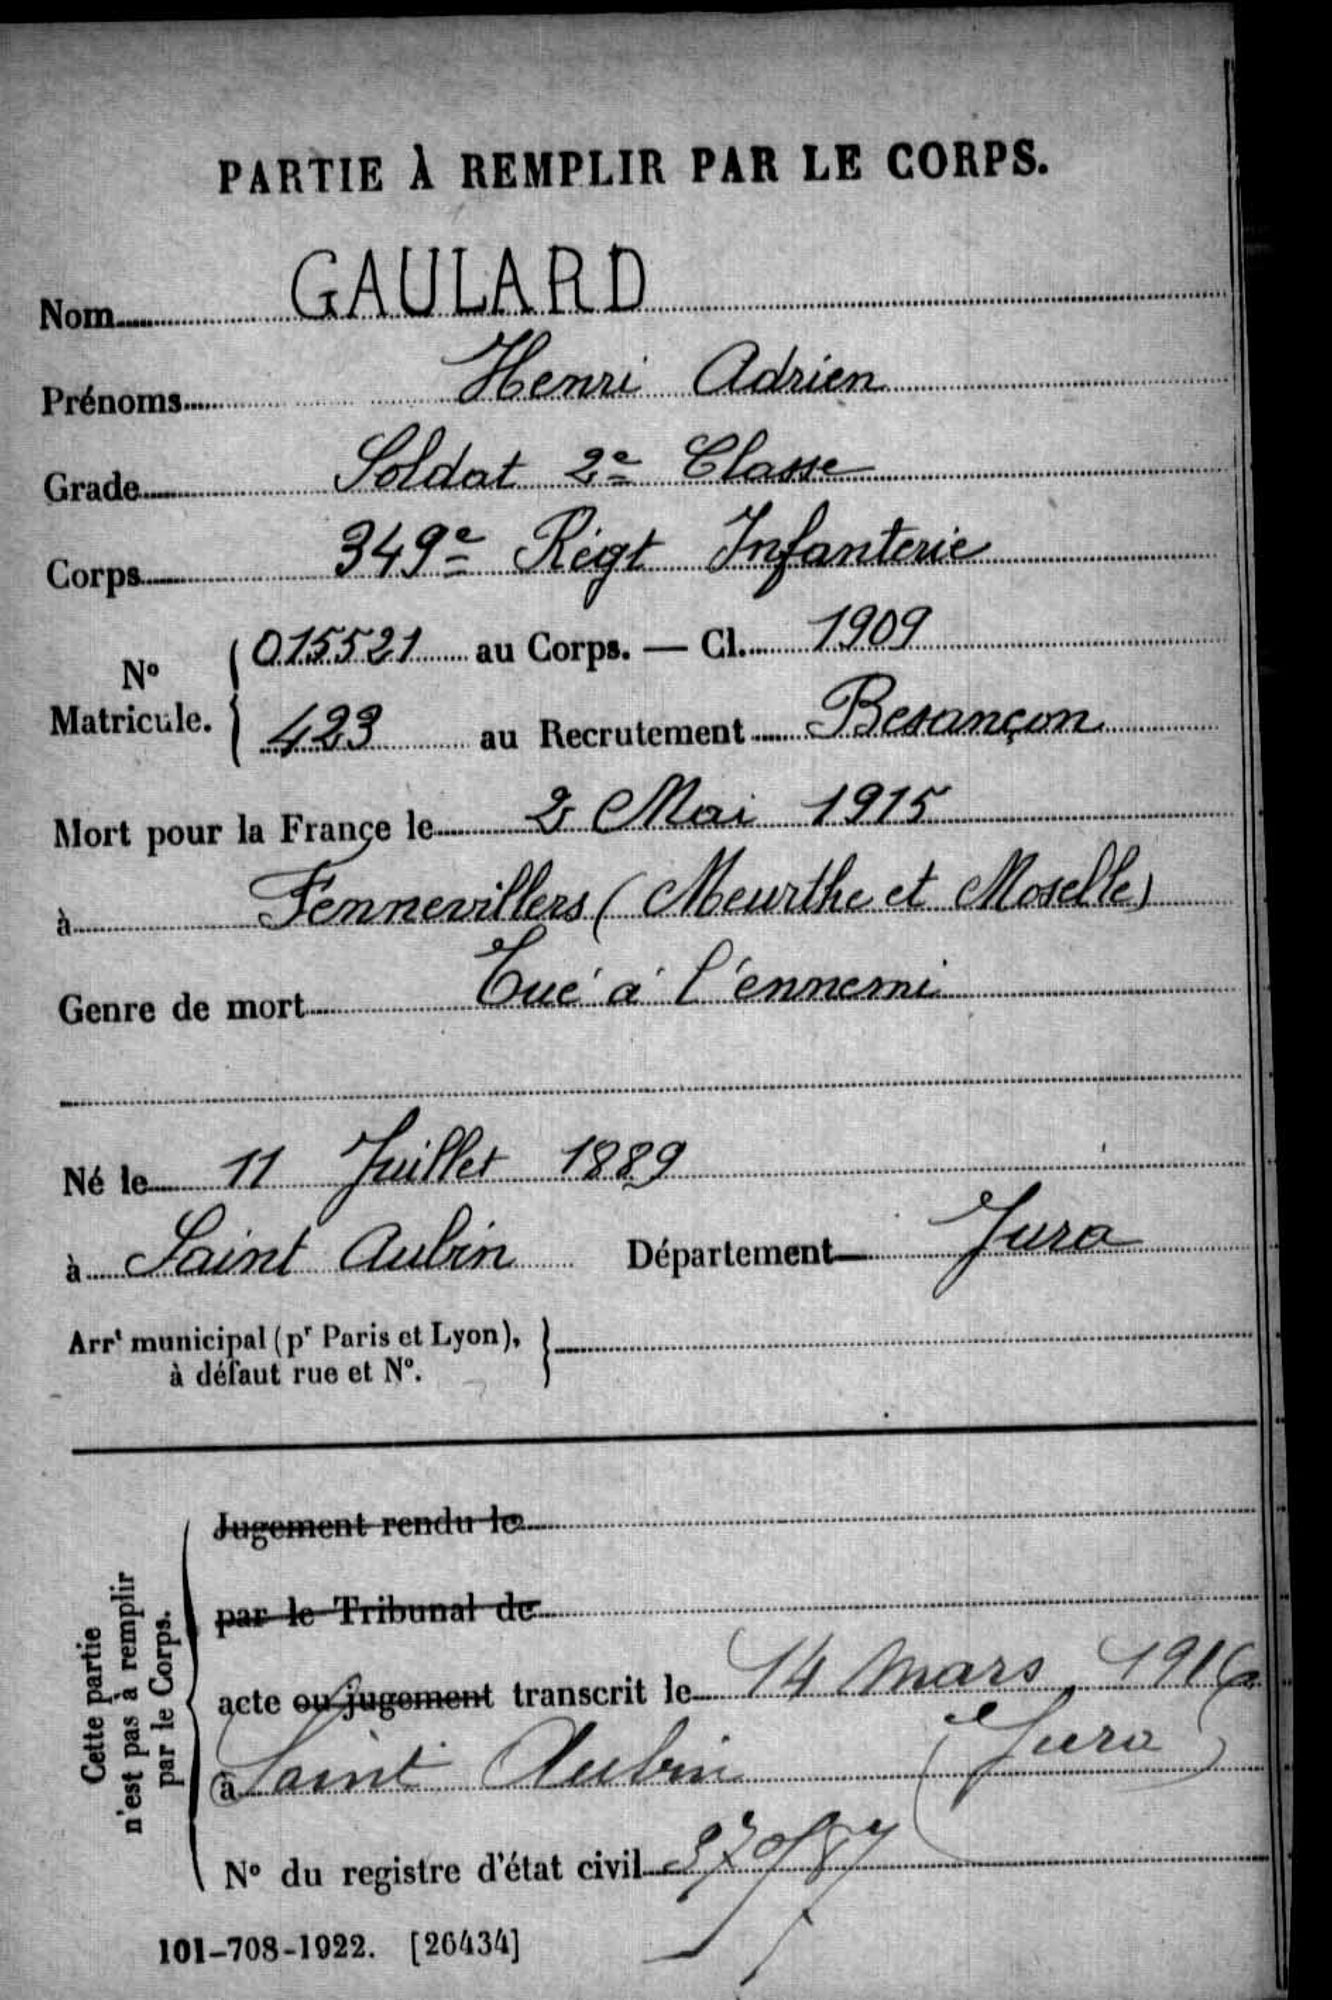 PARTIE À REMPLIR PAR LE CORPS.
Nom GAULARD
Prénoms Henri Adrien
Grade Soldat 2e Classe
Corps 349e Régt Infanterie
No Matricule. { 015521 au Corps. — Cl. 1909
423 au Recrutement Besançon
Mort pour la France le 2 Mai 1915
à Fennevillers (Meurthe et Moselle)
Genre de mort Tué à l'ennemi
Né le 11 Juillet 1889
à Saint Aubin Département Jura
Arrt municipal (pr Paris et Lyon), }
à défaut rue et No.
Cette partie
n'est pas à remplir
par le Corps.
Jugement rendu le
par le Tribunal de
acte ou jugement transcrit le 14 mars 1916
à Saint Aubin (Jura)
No du registre d'état civil
101-708-1922. [26434]